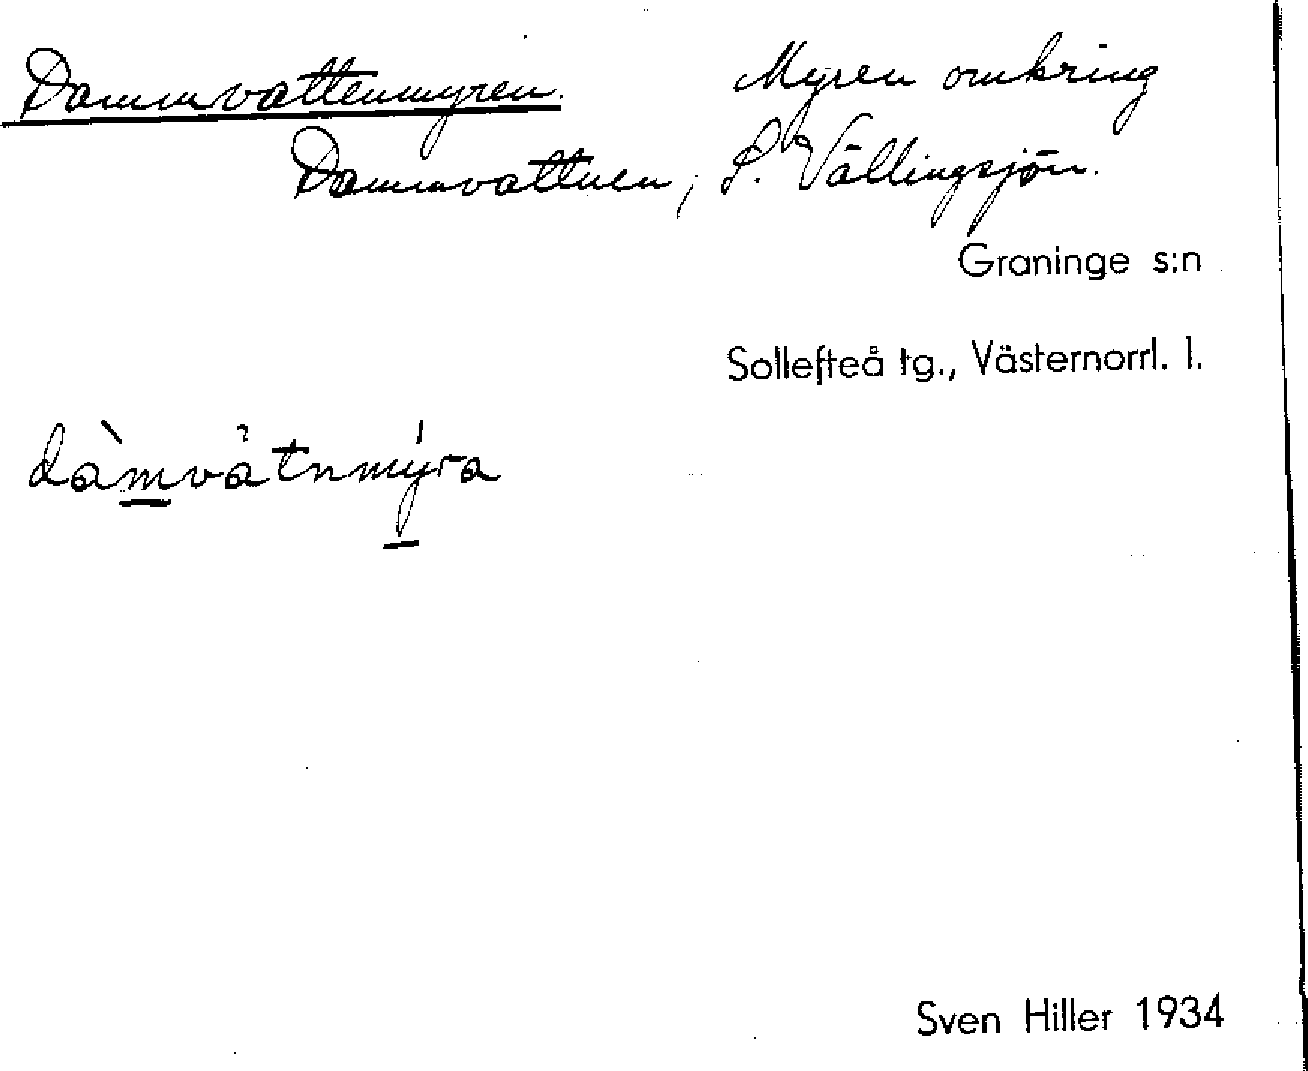 Dammvattenmyren. Myren omkring
Dammvattnen, S. Vällingsjön.
Graninge s:n
Sollefteå tg., Västernorrl. l.
dàmvàtnmýra
Sven Hiller 1934